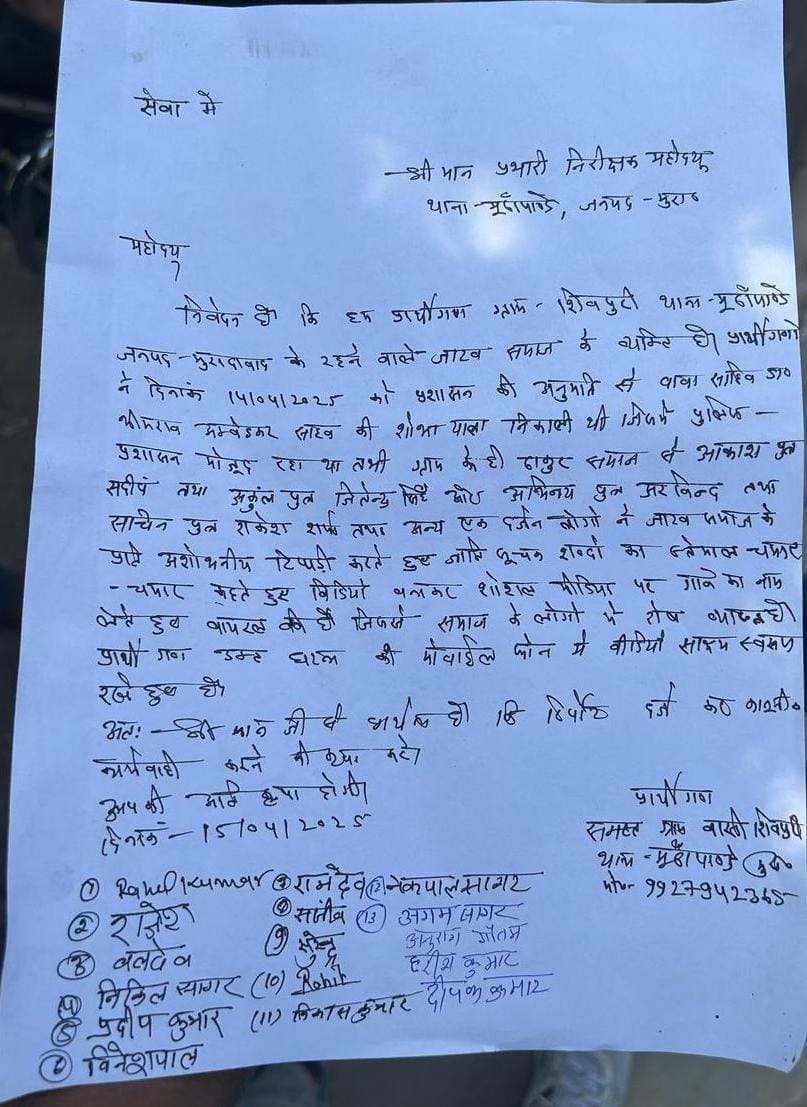 सेवा में
श्री मान प्रभारी निरीक्षक महोदय
थाना - मूढ़ापाण्डे, जनपद - मुरा०
महोदय
निवेदन है कि हम प्रार्थीगण ग्राम - शिवपुरी थाना - मूढ़ापाण्डे
जनपद - मुरादाबाद के रहने वाले जाटव समाज के व्यक्ति है। प्रार्थीगणों
ने दिनांक 14/04/2025 को प्रशासन की अनुमति से बाबा साहिब डा०
भीमराव अम्बेडकर साहब की शोभा यात्रा निकाली थी जिसमे पुलिस -
प्रशासन मौजूद रहा था तभी ग्राम के ही ठाकुर समाज से आकाश पुत्र
सदीप तथा अकुंल पुत्र जितेन्द्र सिंह और अभिनय पुत्र अरविन्द तथा
सचिन पुत्र राकेश शर्मा तथा अन्य एक दर्जन लोगों ने जाटव समाज के
प्रति अशोभनीय टिप्पडी करते हुए जाति सूचक शब्दों का इस्तेमाल चमार
- चमार कहते हुए विडियो बनाकर शोशल मीडिया पर गाने का नाम
लेते हुए वायरल की है जिससे समाज के लोगों में रोष व्याप्त है।
प्रार्थी गण उक्त घटना की मोबाईल फोन में वीडियो साक्ष्य स्वरूप
रखे हुए है।
अतः - श्री मान जी से प्रार्थना है कि रिपोर्ट दर्ज कर कानूनी
कार्यवाही करने की कृपा करे।
आप की अति कृपा होगी।
दिनांक - 15/04/2025
प्रार्थी गण
समस्त ग्राम वासी शिवपुरी
थाना - मूढ़ापाण्डे मुरा०
मो० - 9927942365
① Rahul Kumar
② राजेश
③ बलदेव
④ निकिल सागर
⑤ प्रदीप कुमार
⑥ विनेशपाल
⑦ रामदेव
⑧ संजीव
⑨
(10) Rohit
(11) विकास कुमार
⑫ नेकपाल सागर
⑬ अगम सागर
अनुराग गौतम
हरीश कुमार
दीपक कुमार